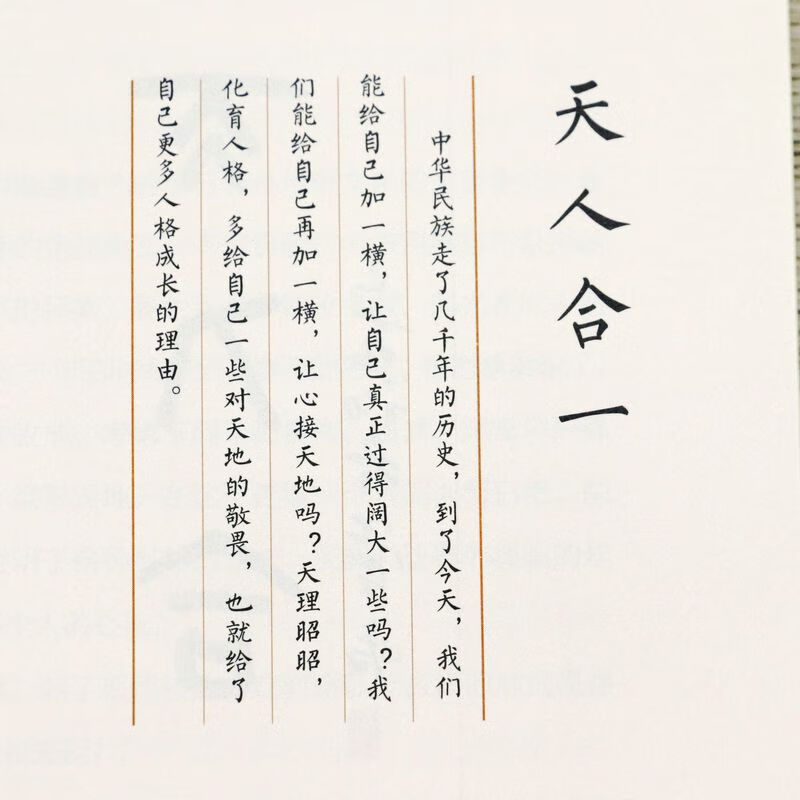 天人合一
中华民族走了几千年的历史，到了今天，我们
能给自己加一横，让自己真正过得阔大一些吗？我
们能给自己再加一横，让心接天地吗？天理昭昭，
化育人格，多给自己一些对天地的敬畏，也就给了
自己更多人格成长的理由。